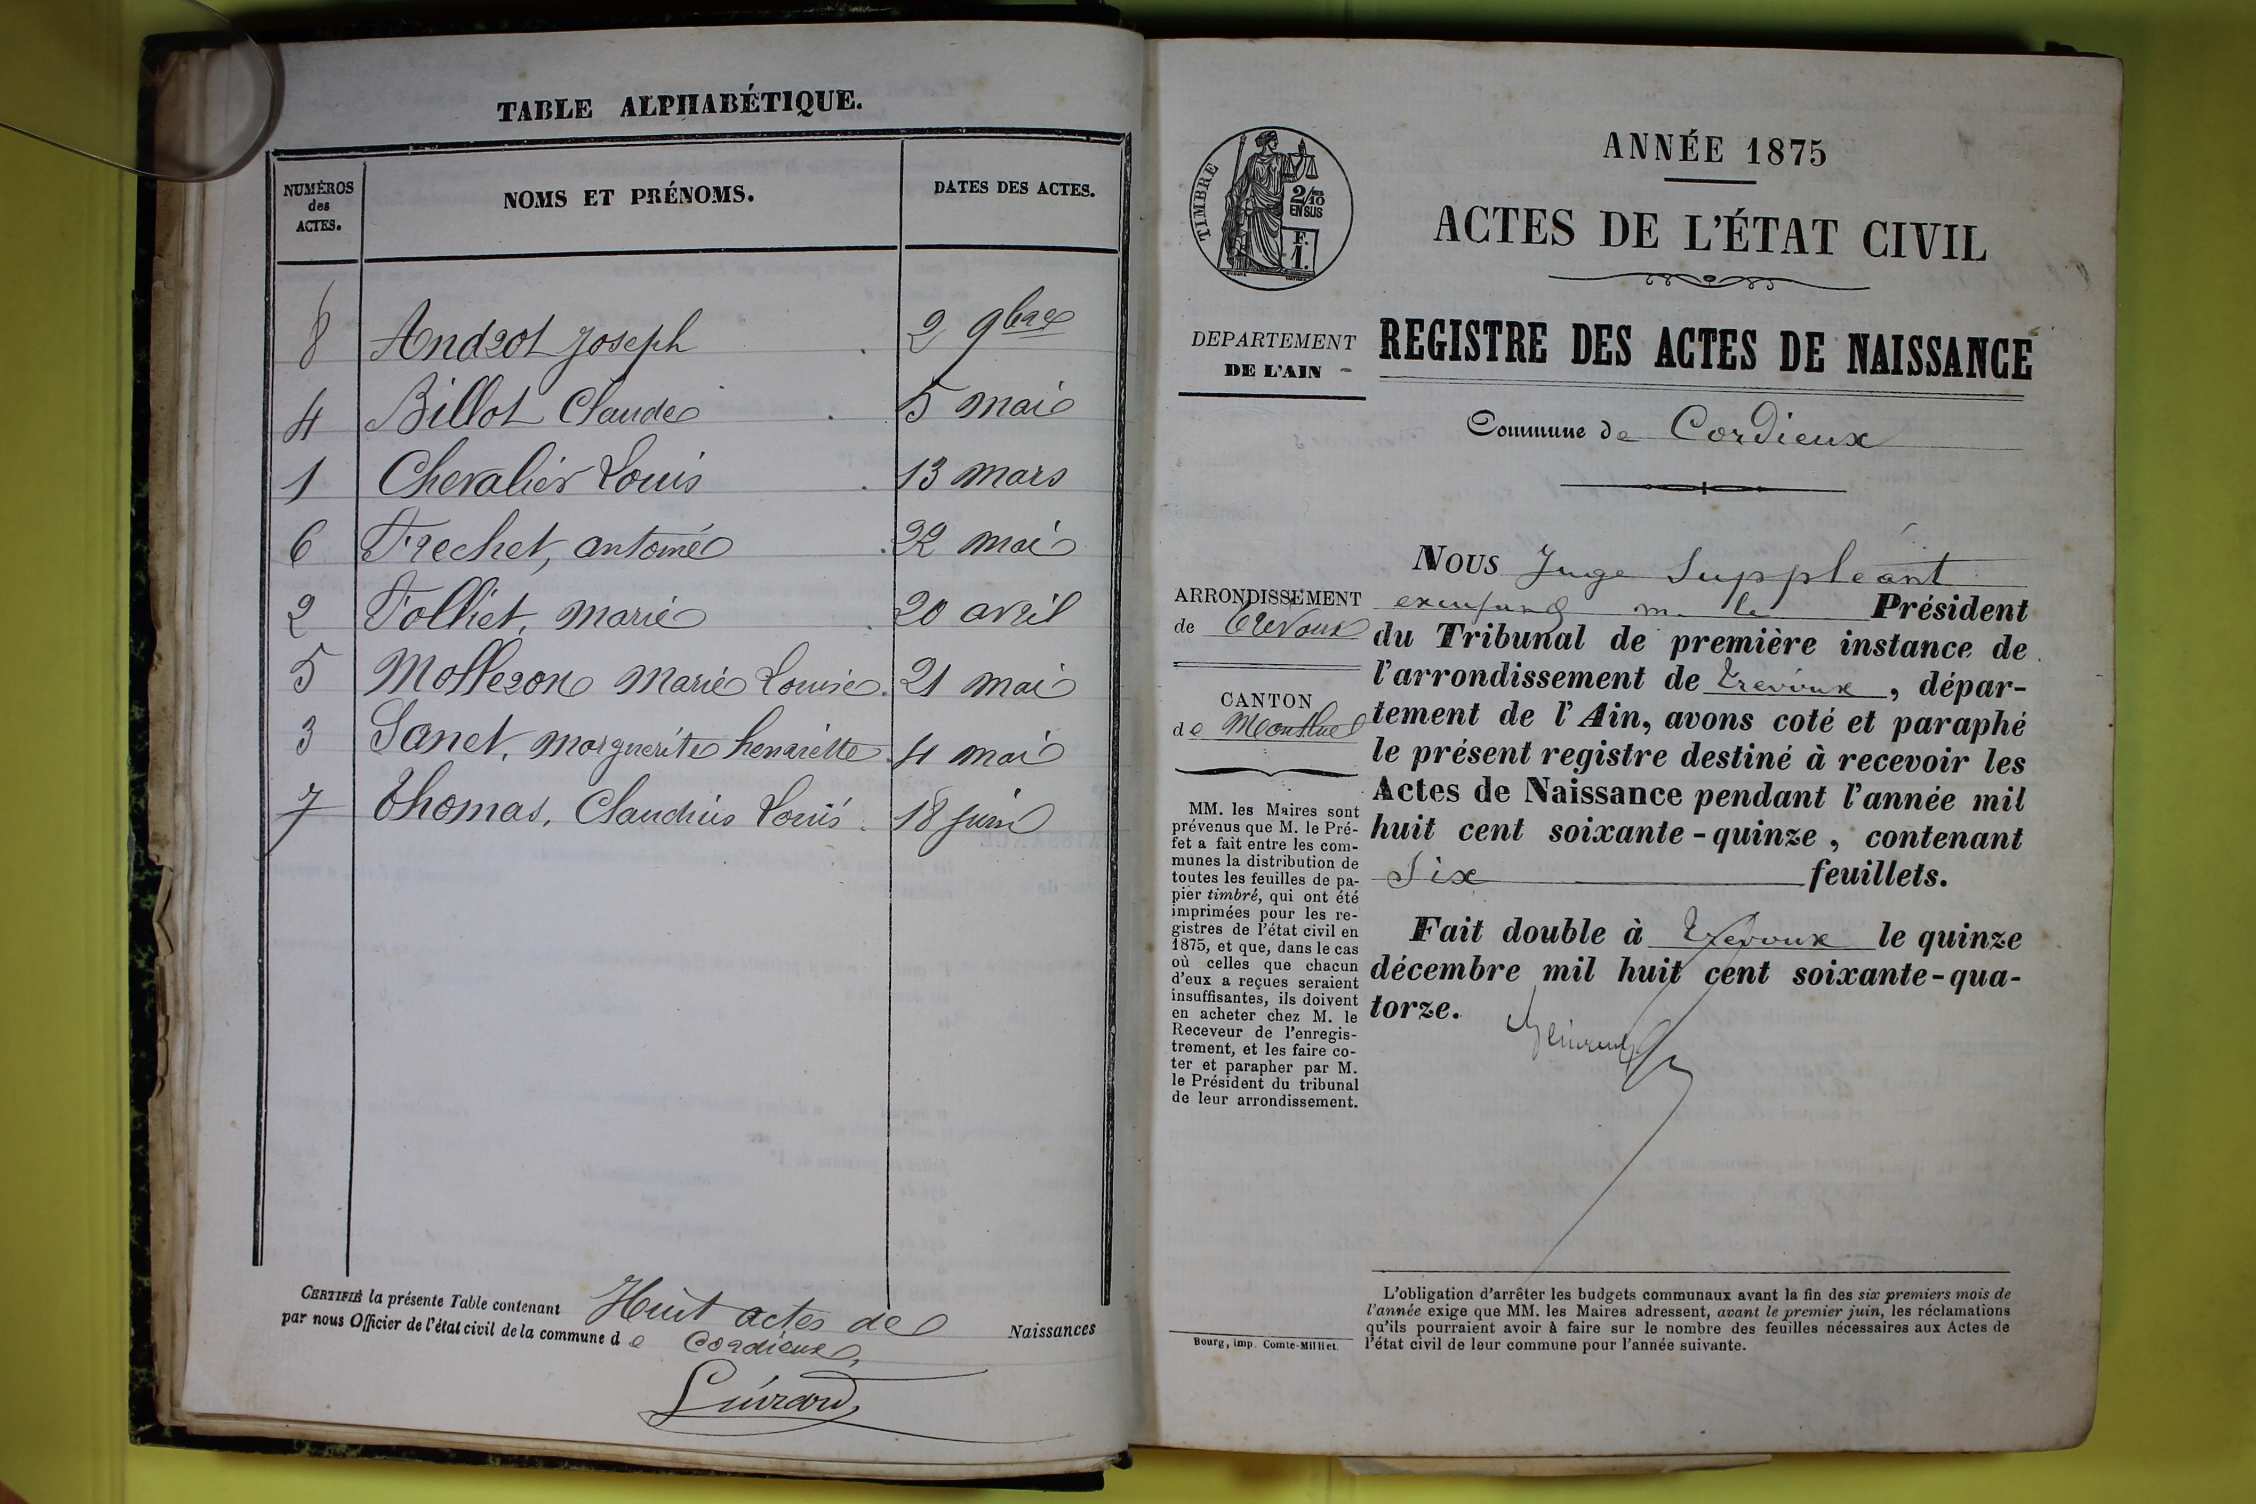 TABLE ALPHABÉTIQUE.
NUMÉROS
des
ACTES.
NOMS ET PRÉNOMS.
DATES DES ACTES.
8 Androt Joseph 2 9bre
4 Billot Claude 5 mai
1 Chevalier Louis 13 mars
6 Frechet, antoine 22 mai
2 Folliet, marie 20 avril
5 Molleron marie Louise 21 mai
3 Sanet, marguerite henriette 4 mai
7 Thomas, Claudius Louis 18 juin
CERTIFIÉ la présente Table contenant Huit actes de Naissances
par nous Officier de l'état civil de la commune de Cordieux,
ANNÉE 1875
ACTES DE L'ÉTAT CIVIL
REGISTRE DES ACTES DE NAISSANCE
Commune de Cordieux
TIMBRE
2/10
EN SUS
F.
1.
DEPARTEMENT
DE L'AIN
ARRONDISSEMENT
de Trevoux
CANTON
de Montluel
MM. les Maires sont
prévenus que M. le Pré-
fet a fait entre les com-
munes la distribution de
toutes les feuilles de pa-
pier timbré, qui ont été
imprimées pour les re-
gistres de l'état civil en
1875, et que, dans le cas
où celles que chacun
d'eux a reçues seraient
insuffisantes, ils doivent
en acheter chez M. le
Receveur de l'enregis-
trement, et les faire co-
ter et parapher par M.
le Président du tribunal
de leur arrondissement.
Bourg, imp. Comte-Milliet.
NOUS Juge Suppléant
m. le Président
du Tribunal de première instance de
l'arrondissement de Trevoux, dépar-
tement de l'Ain, avons coté et paraphé
le présent registre destiné à recevoir les
Actes de Naissance pendant l'année mil
huit cent soixante-quinze, contenant
Six feuillets.
Fait double à Trevoux le quinze
décembre mil huit cent soixante-qua-
torze.
L'obligation d'arrêter les budgets communaux avant la fin des six premiers mois de
l'année exige que MM. les Maires adressent, avant le premier juin, les réclamations
qu'ils pourraient avoir à faire sur le nombre des feuilles nécessaires aux Actes de
l'état civil de leur commune pour l'année suivante.